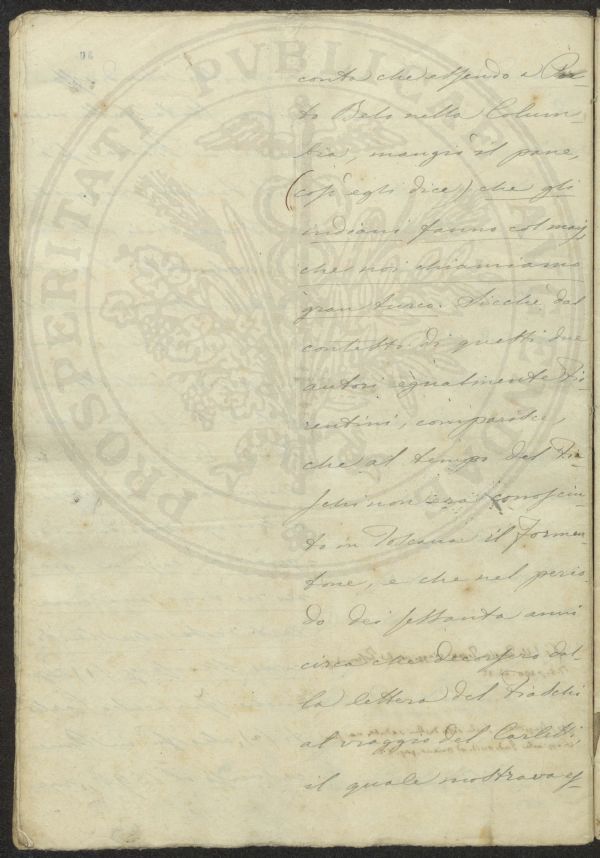 conta che essendo a Por-
to Belo nella Colum-
bia, mangiò il pane,
(così egli dice) che gli
indiani fanno col mays
che noi chiamiamo
gran turco. Sicchè dal
contesto di questi due
autori egualmente Fio-
rentini, comparisce,
che al tempo del Fra-
schi non era conosciu-
to in Toscana il formen-
tone, e che nel perio
do dei settanta anni
circa che decorsero dal-
la lettera del
al viaggio del Carletti,
il quale mostrava
PROSPERITATI PVBLICAE AVGENDAE